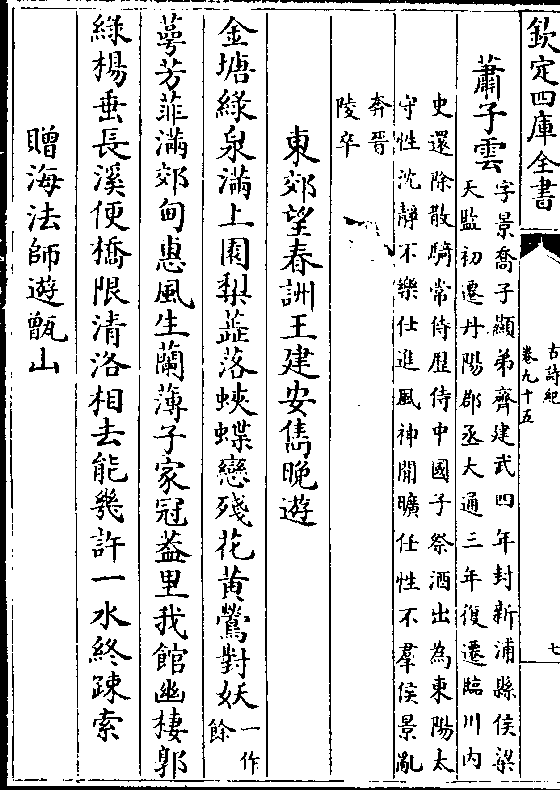 欽定四庫全書
古詩紀
卷九十五
七
蕭子雲
字景喬子顯弟齊建武四年封新浦縣侯梁
天監初遷丹陽郡丞大通三年復遷臨川内
史還除散騎常侍歴侍中國子祭酒出為東陽太
守性沈靜不樂仕進風神閒曠任性不羣侯景亂
奔晋
陵卒
東郊望春訓王建安雋晚遊
金塘綠泉滿上園梨蘂落蛺蝶戀殘花黄鶯對妖
一作
餘
萼芳菲滿郊甸惠風生蘭薄子家冠葢里我館幽棲郭
綠楊垂長溪便橋限清洛相去能幾許一水終疎索
贈海法師遊甑山